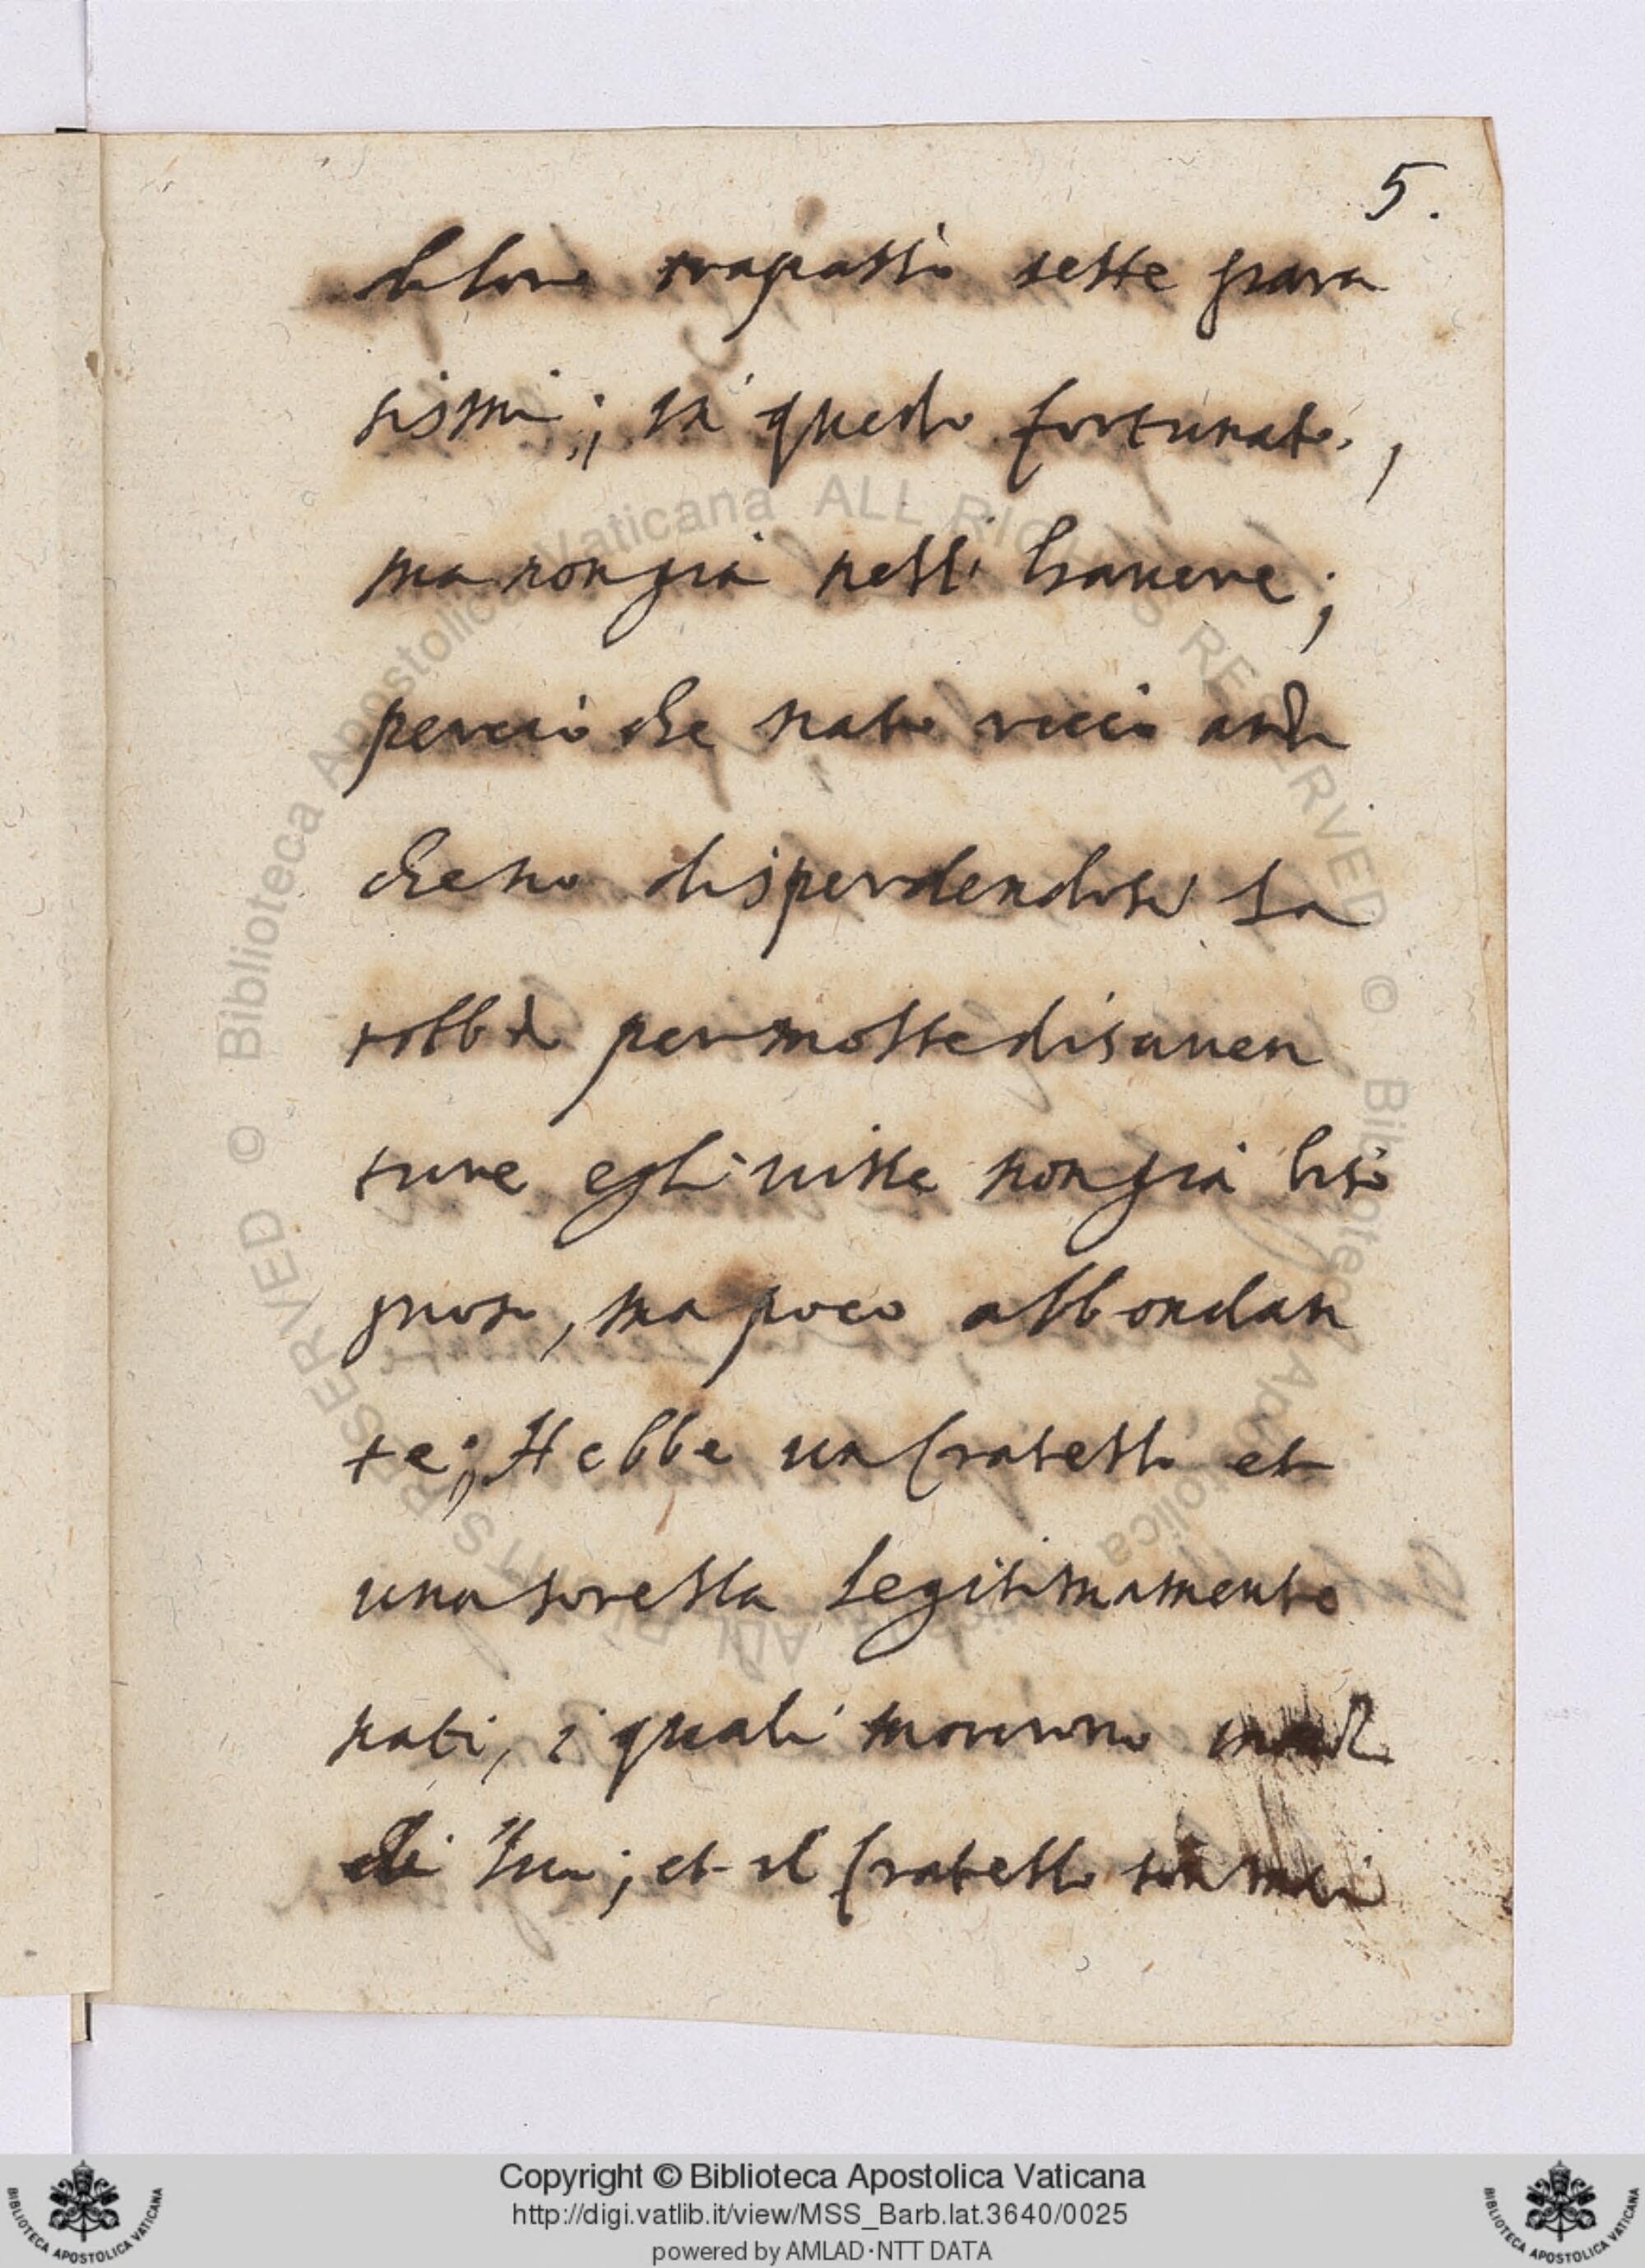 5.
di loro trapassò sette grava
sissimi; in questo fortunato,
ma non già nelli havere;
perciò che nato ricco and
che no disperdendosi la
robba per molte disauen
ture egli uisse non già biso
gnoso, ma poco abbondan
te; Hebbe un fratello et
una sorella legitimamente
nati, i quali morirono
di lui; et il fratello
Biblioteca Apostolica Vaticana ALL RIGHTS RESERVED ©
Copyright © Biblioteca Apostolica Vaticana
http://digi.vatlib.it/view/MSS_Barb.lat.3640/0025
powered by AMLAD·NTT DATA
BIBLIOTECA APOSTOLICA VATICANA
BIBLIOTECA APOSTOLICA VATICANA